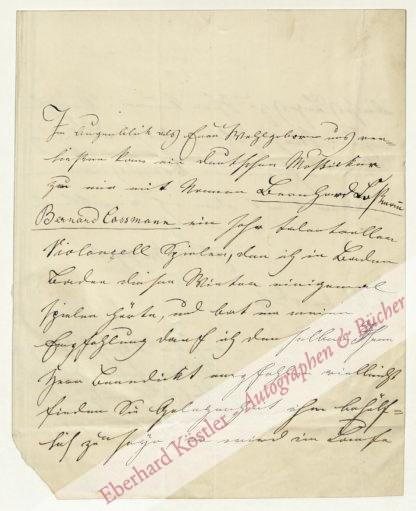 Im Augenblick als Euer Wohlgeboren uns ver-
ließen kam ein deutscher Musiker
zu mir mit Namen Bernhard
Bernard Cossmann ein sehr talentvoller
Violoncell Spieler, den ich in Baden
Baden diesen Winter einigemal
spielen hörte, und bat um meine
Empfehlung darf ich den selben Ihnen
Herr Benedikt empfehlen vielleicht
finden Sie Gelegenheit ihm behülf-
lich zu sein wird im Laufe
Eberhard Köstler Autographen & Bücher